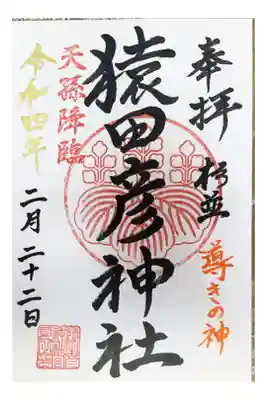 奉拝
櫛並
導きの神
猿田彦神社
天孫降臨
令和四年
二月二十二日